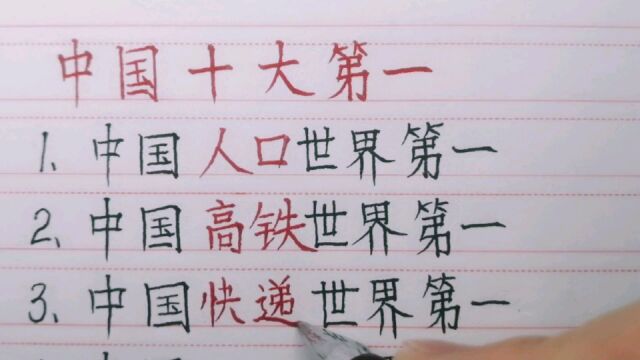 中国十大第一
1、中国人口世界第一
2、中国高铁世界第一
3、中国快递世界第一